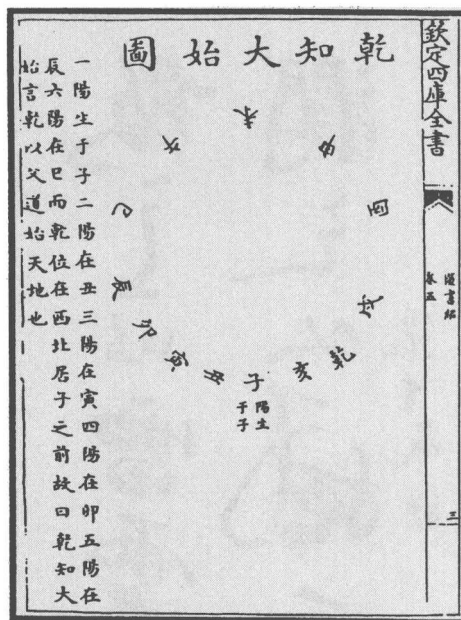 欽定四庫全書
卷五
三
乾知大始圖
未
申
酉
戌
乾
亥
子
陽生
于子
丑
寅
卯
辰
巳
午
一陽生于子二陽在丑三陽在寅四陽在卯五陽在
辰六陽在巳而乾位在西北居子之前故曰乾知大
始言乾以父道始天地也